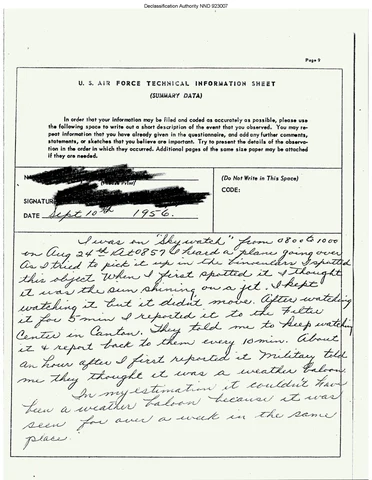 Declassification Authority NND 923007
Page 9
U. S. AIR FORCE TECHNICAL INFORMATION SHEET
(SUMMARY DATA)
In order that your information may be filed and coded as accurately as possible, please use
the following space to write out a short description of the event that you observed. You may re-
peat information that you have already given in the questionnaire, and add any further comments,
statements, or sketches that you believe are important. Try to present the details of the observa-
tion in the order in which they occurred. Additional pages of the same size paper may be attached
if they are needed.
(Please Print)
SIGNATUR
DATE Sept. 10th 1956.
(Do Not Write in This Space)
CODE:
I was on "Skywatch" from 0800 to 1000
on Aug 24th. At 0857 I heard a plane going over
As I tried to pick it up in the binoculars I spotted
this object. When I first spotted it I thought
it was the sun shining on a jet. I kept
watching it but it didn't move. After watching
it for 5 min I reported it to the Filter
Center in Canton. They told me to keep watching
it & report back to them every 10 min. About
an hour after I first reported it Military told
me they thought it was a weather baloon.
In my estimation it couldn't have
been a weather baloon because it was
seen for over a week in the same
place.